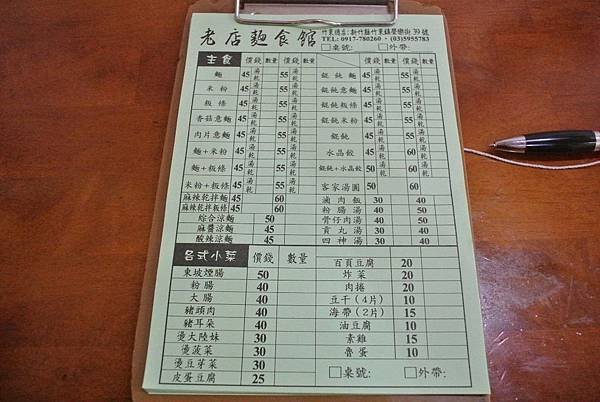 老店麵食館 竹東總店:新竹縣竹東鎮榮樂街39號
TEL: 0917-780260‧(03)5955783
□桌號: □外帶:
主食 價錢 數量 價錢 數量 價錢 數量 價錢 數量
麵 45 湯乾 55 湯乾 餛飩麵 45 湯乾 55 湯乾
米粉 45 湯乾 55 湯乾 餛飩意麵 45 湯乾 55 湯乾
粄條 45 湯乾 55 湯乾 餛飩粄條 45 湯乾 55 湯乾
香菇意麵 45 湯乾 55 湯乾 餛飩米粉 45 湯乾 55 湯乾
肉片意麵 45 湯乾 55 湯乾 餛飩 45 湯乾 55 湯乾
麵+米粉 45 湯乾 55 湯乾 水晶餃 45 湯乾 60 湯乾
麵+粄條 45 湯乾 55 湯乾 餛飩+水晶餃 50 湯乾 60 湯乾
米粉+粄條 45 湯乾 55 湯乾 客家湯圓 50 60
麻辣乾拌麵 45 60 滷肉飯 30 40
麻辣乾拌粄條 45 60 粉腸湯 40 50
綜合涼麵 50 骨仔肉湯 40 50
麻醬涼麵 45 貢丸湯 30 40
酸辣涼麵 45 四神湯 30 40
各式小菜 價錢 數量 百頁豆腐 20
東坡煙腸 50 炸菜 20
粉腸 40 肉捲 20
大腸 40 豆干(4片) 10
豬頭肉 40 海帶(2片) 15
豬耳朵 40 油豆腐 10
燙大陸妹 30 素雞 15
燙菠菜 30 魯蛋 10
燙豆芽菜 30
皮蛋豆腐 25 □桌號: □外帶: